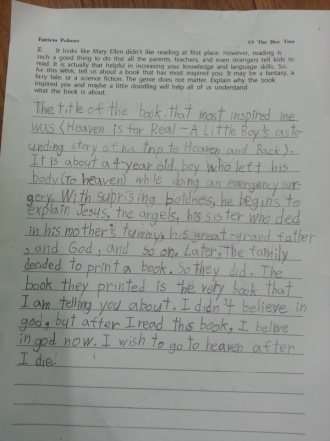 Patricia Polacco #3 The Bee Tree
II. It looks like Mary Ellen didn't like reading at first place. However, reading is
such a good thing to do that all the parents, teachers, and even strangers tell kids to
read. It is actually that helpful in increasing your knowledge and language skills. So,
for this week, tell us about a book that has most inspired you. It may be a fantasy, a
fairy tale, or a science fiction. The genre does not matter. Explain why the book
inspired you and maybe a little doodling will help all of us understand
what the book is about.
The title of the book that most inspired me
was (Heaven is for Real - A Little Boy's asto-
unding story of his trip to Heaven and Back).
It is about a 4 year old boy who left his
body (to heaven) while doing an emergency sur-
gery. With suprising boldnes, he begins to
explain Jesus, the angels, his sister who died
in his mother's tummy, his great-grand father
, and God, and so on. Later, the family
decided to print a book. So they did. The
book they printed is the very book that
I am telling you about. I didn't believe in
god, but after I read this book, I belive
in god now. I wish to go to heaven after
I die